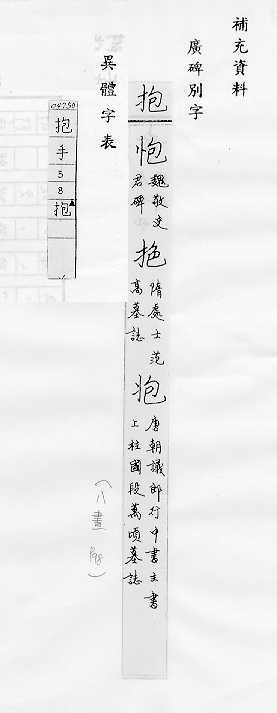 補充資料
廣碑別字
抱
怉
魏敬史
君碑
抱
隋處士范
高墓誌
抱
唐朝議郎行中書主書
上柱國段萬頃墓誌
(八畫 P98)
異體字表
04750
抱
手
5
8
抱